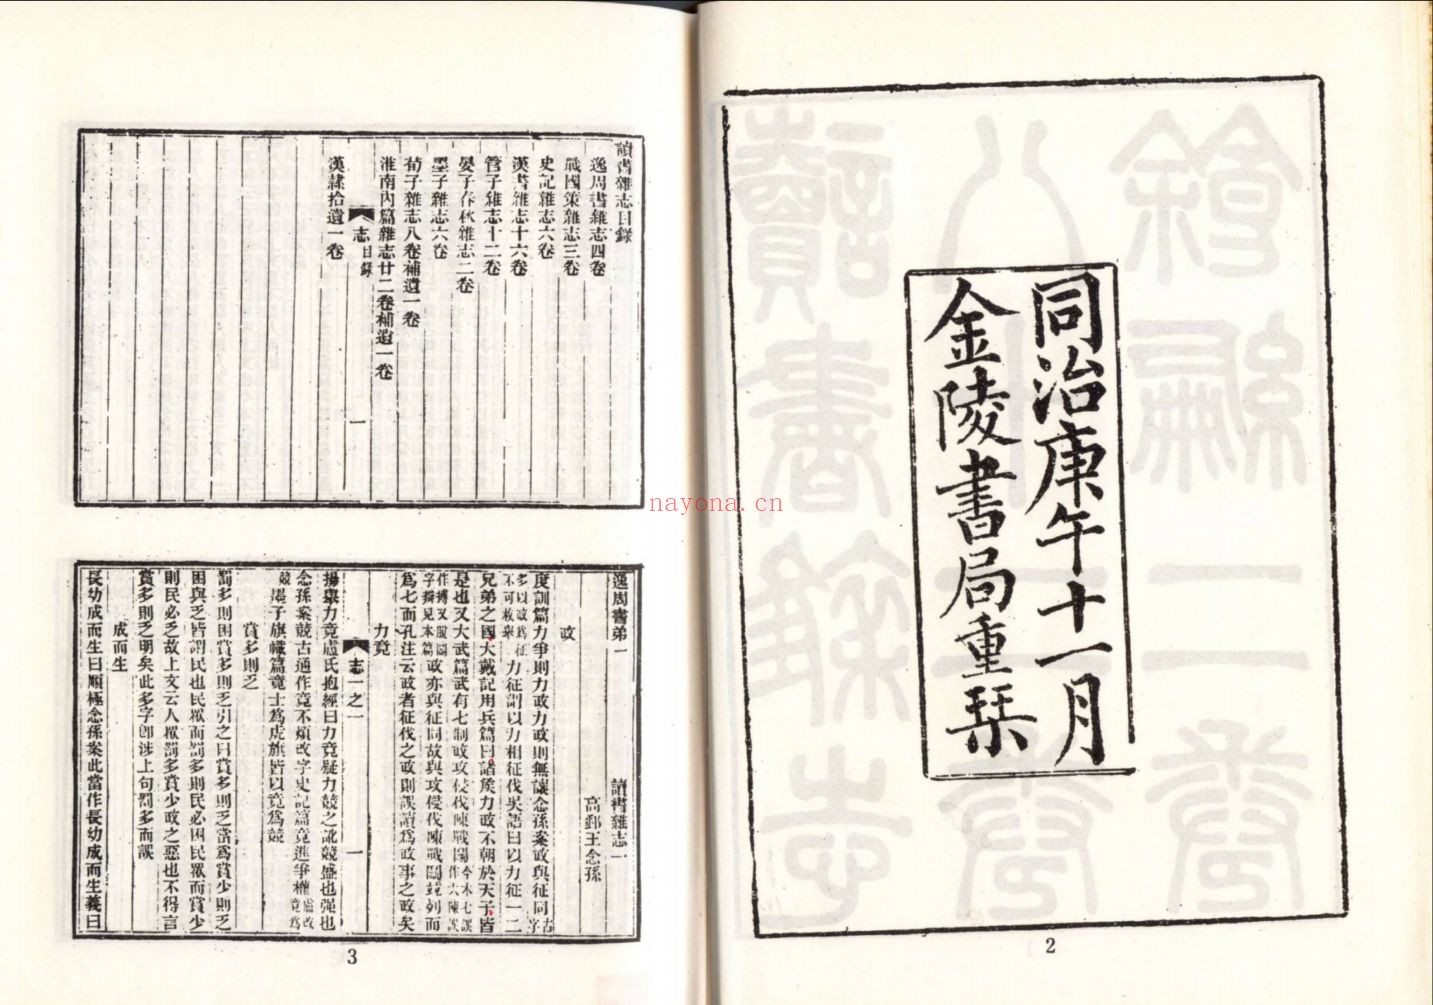 同治庚午十一月
金陵書局重琹
2
讀書雜志目錄
逸周書雜志四卷
戰國策雜志三卷
史記雜志六卷
漢書雜志十六卷
管子雜志十二卷
晏子春秋雜志二卷
墨子雜志六卷
荀子雜志八卷補遺一卷
淮南內篇雜志廿二卷補遺一卷
志 目錄 一
漢隸拾遺一卷
逸周書弟一 讀書雜志一
高郵王念孫
政
度訓篇力爭則力政力政則無讓念孫案政與征同古字
多以政爲征不可枚舉力征謂以力相征伐吳語曰以力征一二
兄弟之國大戴記用兵篇曰諸矦力政不朝於天子皆
是也又大武篇武有七制政攻侵伐陳戰鬭今本七誤作六陳誤
作搏又脫鬭字辯見本篇政亦與征同故與攻侵伐陳戰鬭竝列而
爲七而孔注云政者征伐之政則誤讀爲政事之政矣
力竟
志一之一 一
揚舉力竟盧氏抱經曰力竟疑力競之訛競盛也强也
念孫案競古通作竟不煩改字史記篇竟進爭權盧改竟爲
競墨子旗幟篇竟士爲虎旗皆以竟爲競
賞多則乏
罰多則困賞多則乏引之曰賞多則乏當爲賞少則乏
困與乏皆謂民也民衆而罰多則民必困民衆而賞少
則民必乏故上文云人衆罰多賞少政之惡也不得言
賞多則乏明矣此多字卽涉上句罰多而誤
成而生
長幼成而生曰順極念孫案此當作長幼成而生義曰
3
nayona.cn